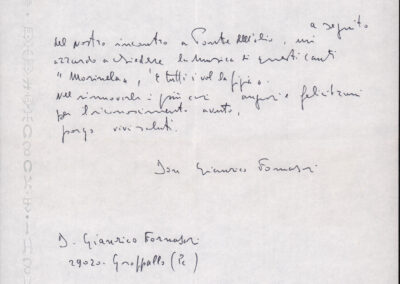 a seguito
del nostro incontro a Ponte dell'olio, mi
azzardo a chiedere la musica di questi canti
"Marinela", "e tutti i vol la fifia".
Nel rinnovarle i più vivi auguri e felicitazioni
per l'riconoscimento avuto,
porgo vivi saluti.
Don Gianrico Fornasari
D. Gianrico Fornasari
29020 - Groppallo (Pc)